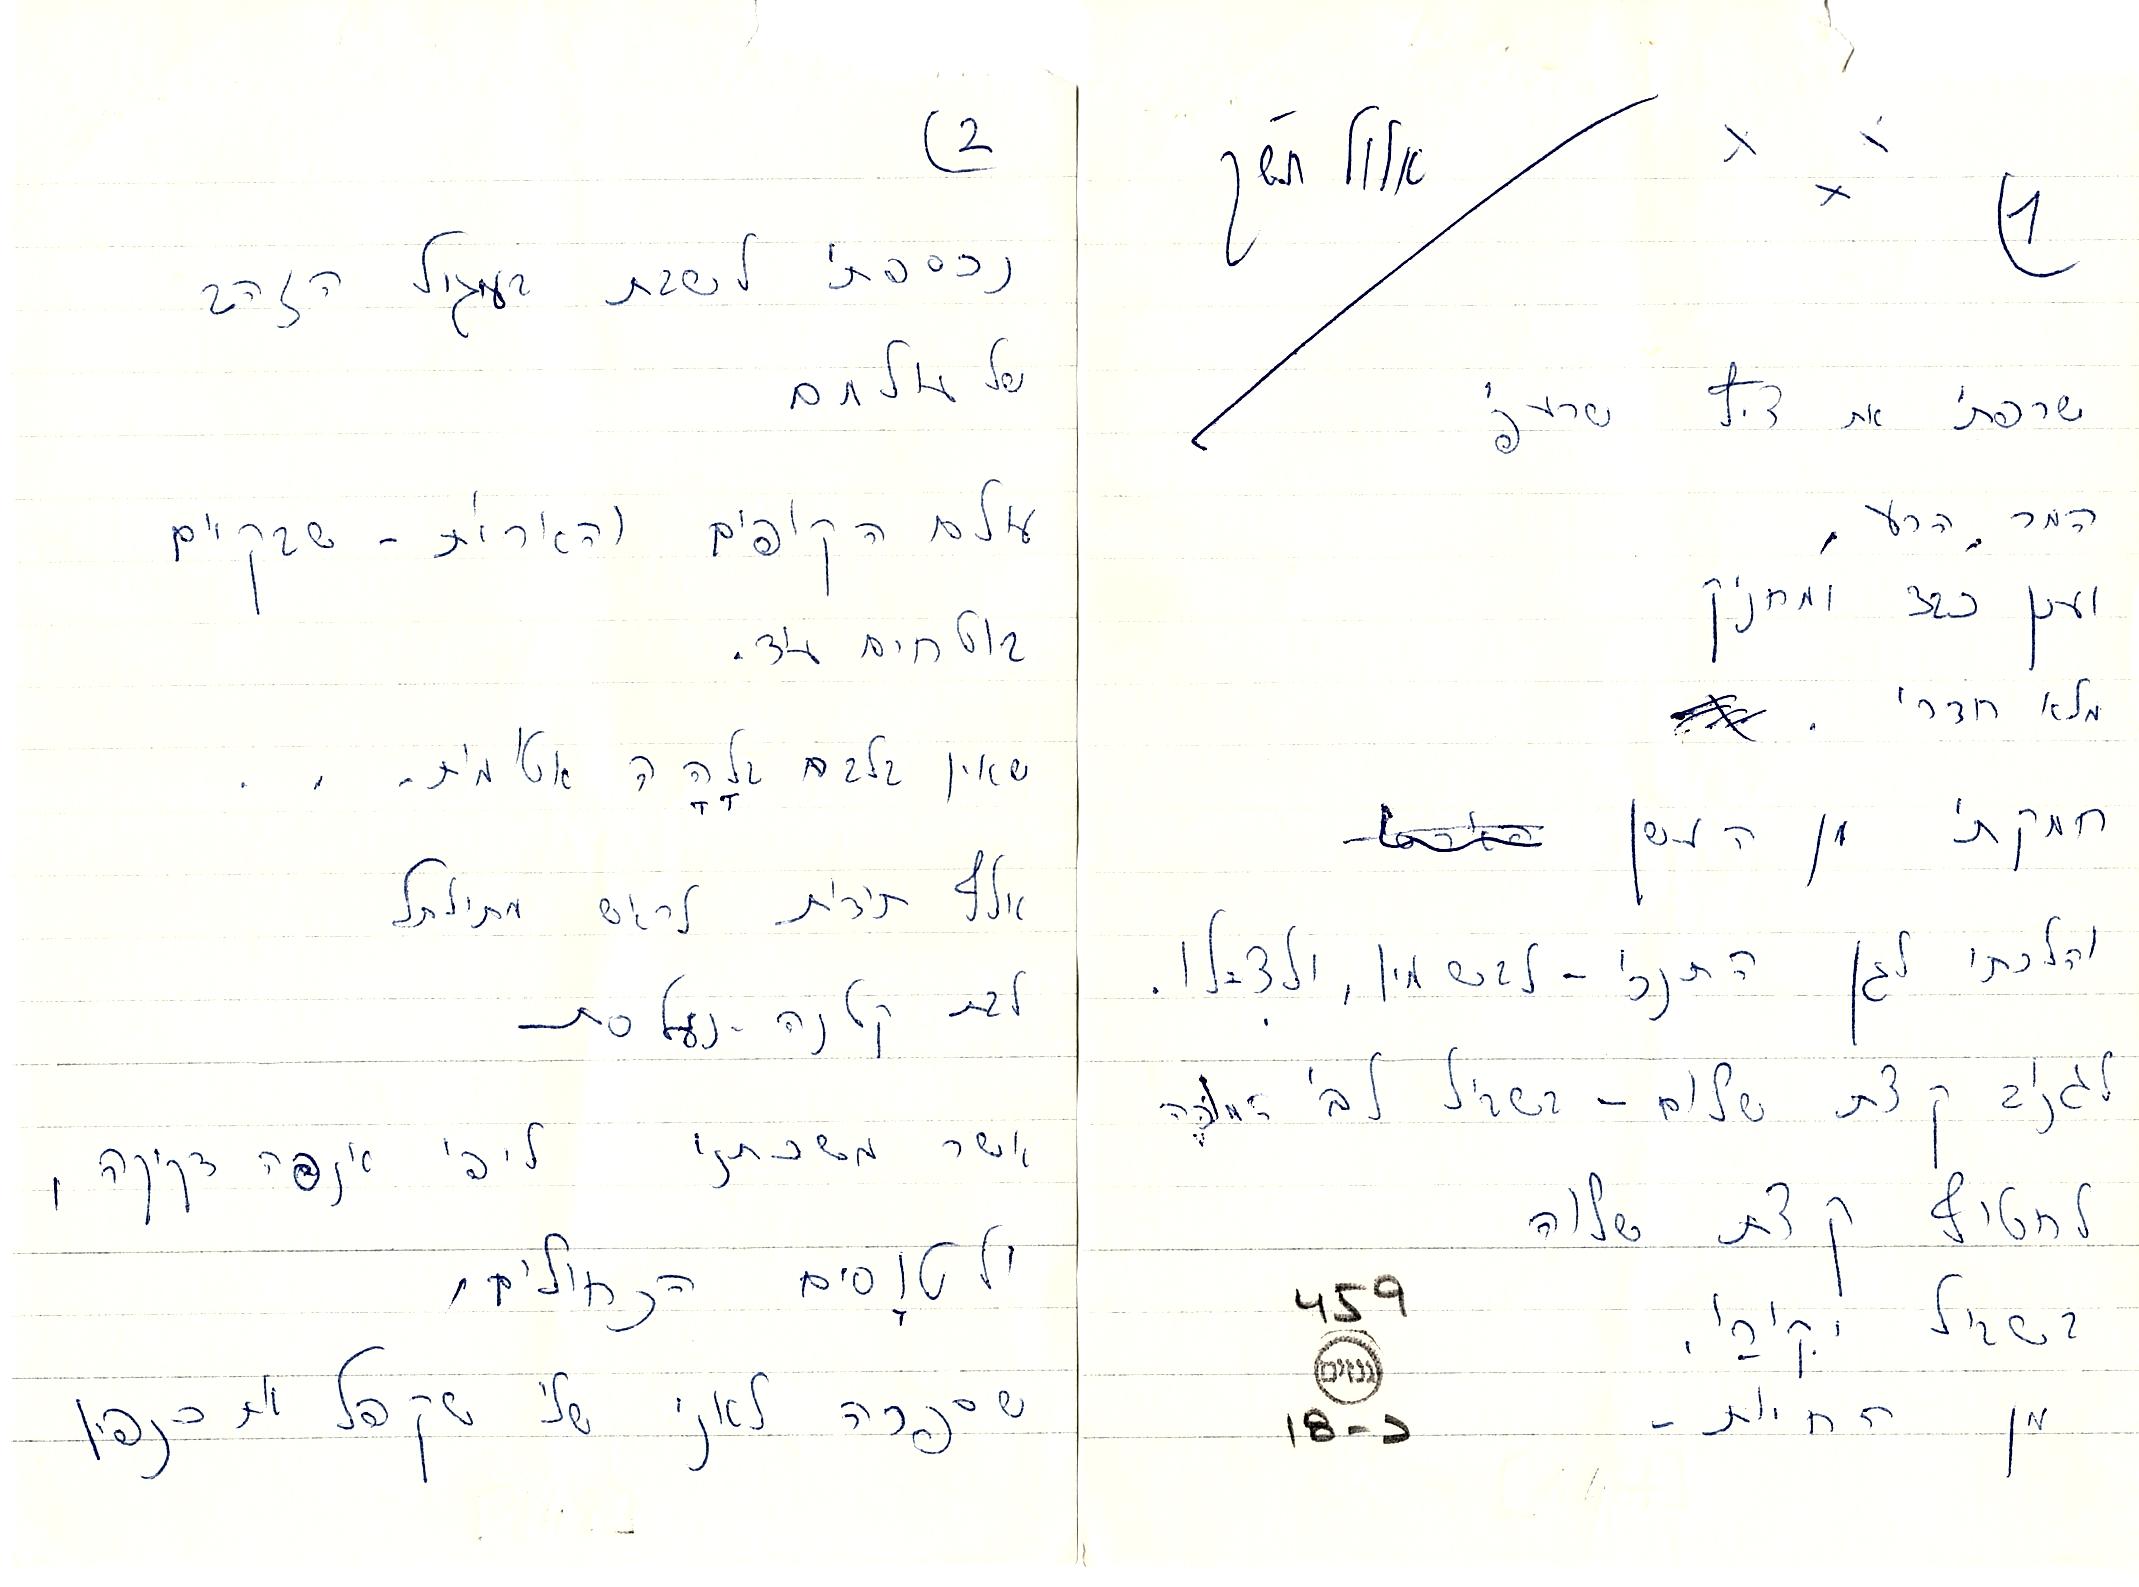 1)
x x
x
אלול תשך
שרפתי את דלף שרעפי
המר, הרע,
וענן כבד ומחניק
מלא חדרי.
חמקתי מן העשן
והלכתי לגן התנכי - לבשמיו, ולצבלו.
לגניב קצת שלום - בשביל לבי המוכה
לחטוף קצת שלוה
בשביל יקירי.
מן החיות -
459
גנזים
18-כ
2)
נכספתי לשבת בעגול הזהב
של עולמם
עולם הקופים והאריות - שבקיום
בוטחים עוד.
שאין בלבם בלהה אטומית - . .
אלף תודות לראש מתולתל
לבת קטנה - נעלסת
אשר משכתני ליפי אנפה דקיקה,
ולטוסים הכחולים,
שספרה לאני שלי שקפל את כנפיו